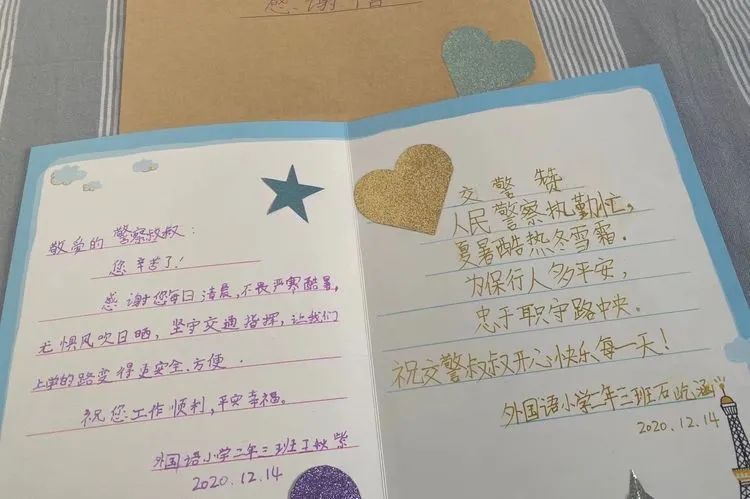 感谢信
敬爱的 警察叔叔：
您 辛苦了！
感谢您每日清晨，不畏严寒酷暑，
无惧风吹日晒，坚守交通指挥，让我们
上学的路变得更安全、方便。
祝您工作顺利，平安幸福。
外国语小学二年三班王秋紫
2020.12.14
交警赞
人民警察执勤忙，
夏暑酷热冬雪霜.
为保行人多平安，
忠于职守路中央.
祝交警叔叔开心快乐每一天！
外国语小学二年三班石屹涵
2020.12.14